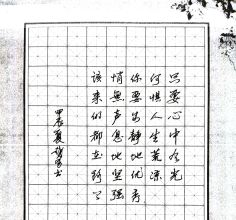 只要心中有光
何惧人生荒凉
你要安静地优秀
悄無声息地坚强
该来的都在路上
甲辰夏
书